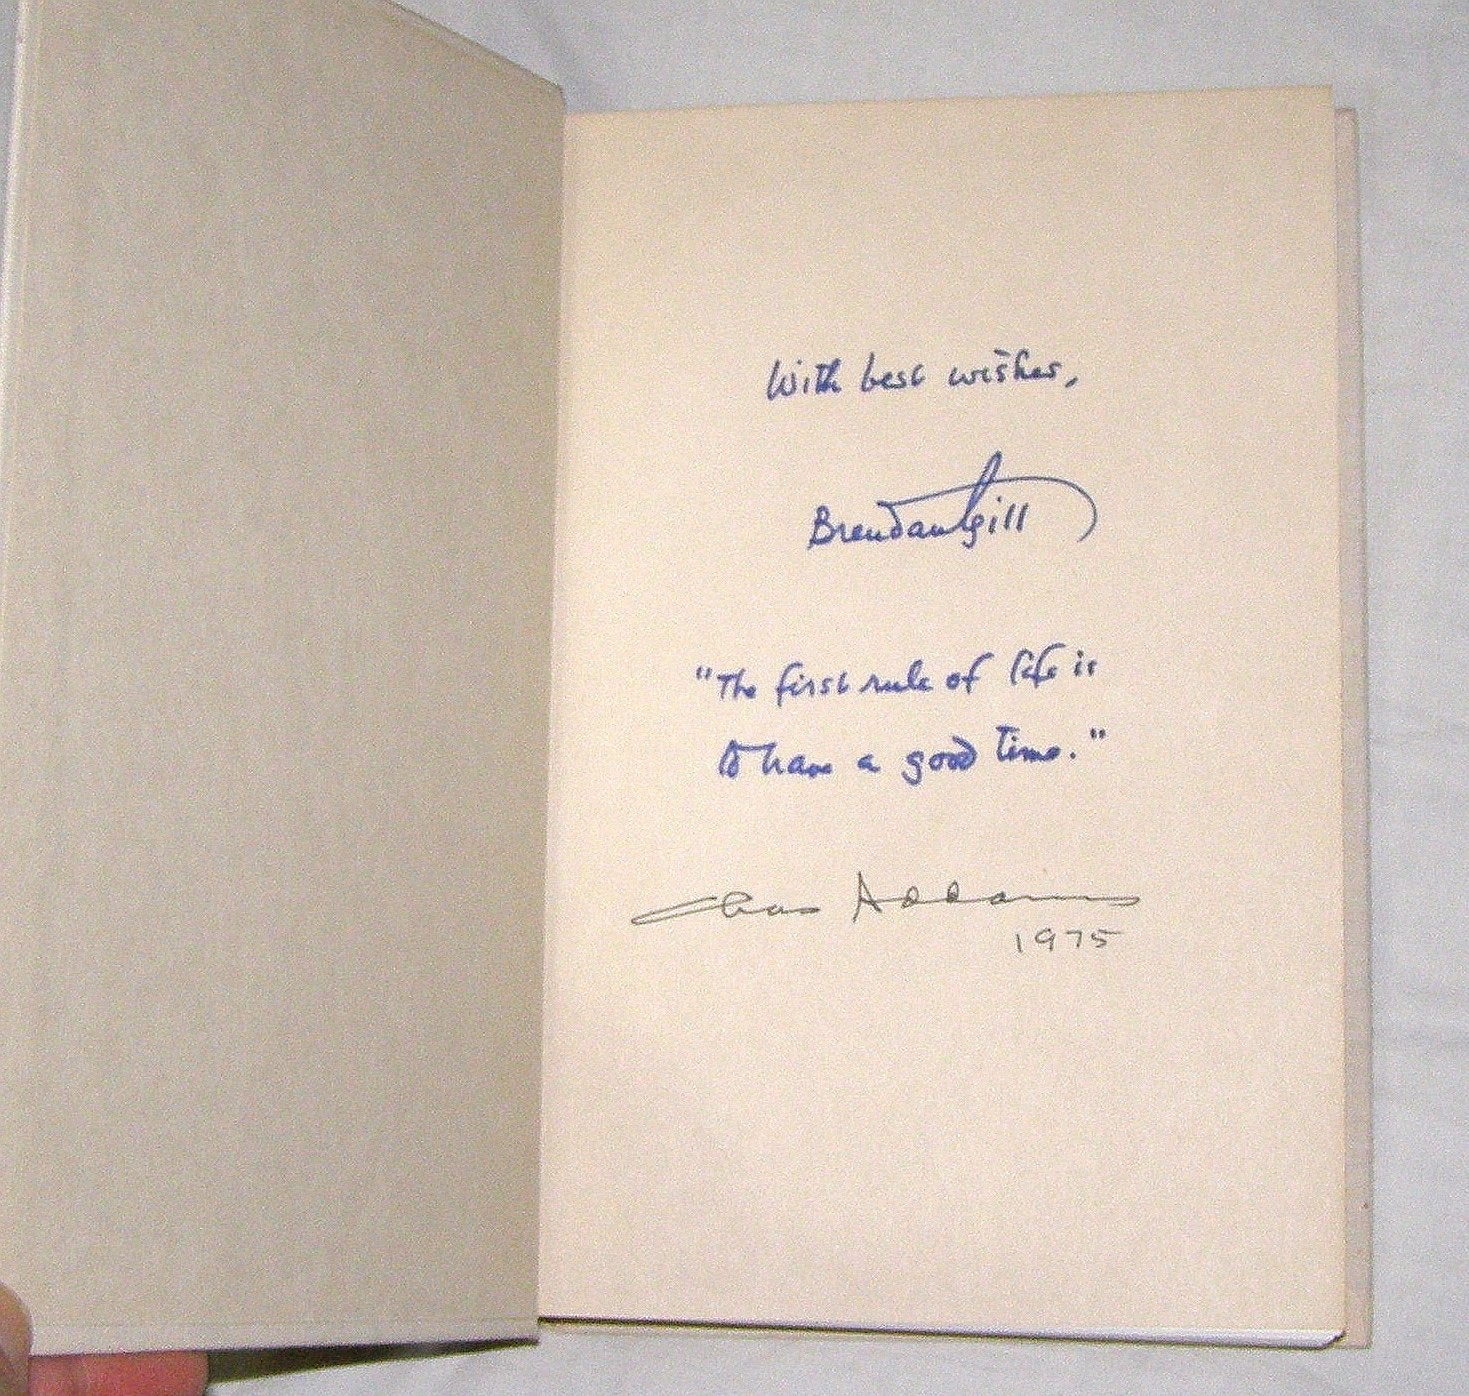 With best wishes,
Brendan Gill
"The first rule of life is
to have a good time."
Chas Addams
1975